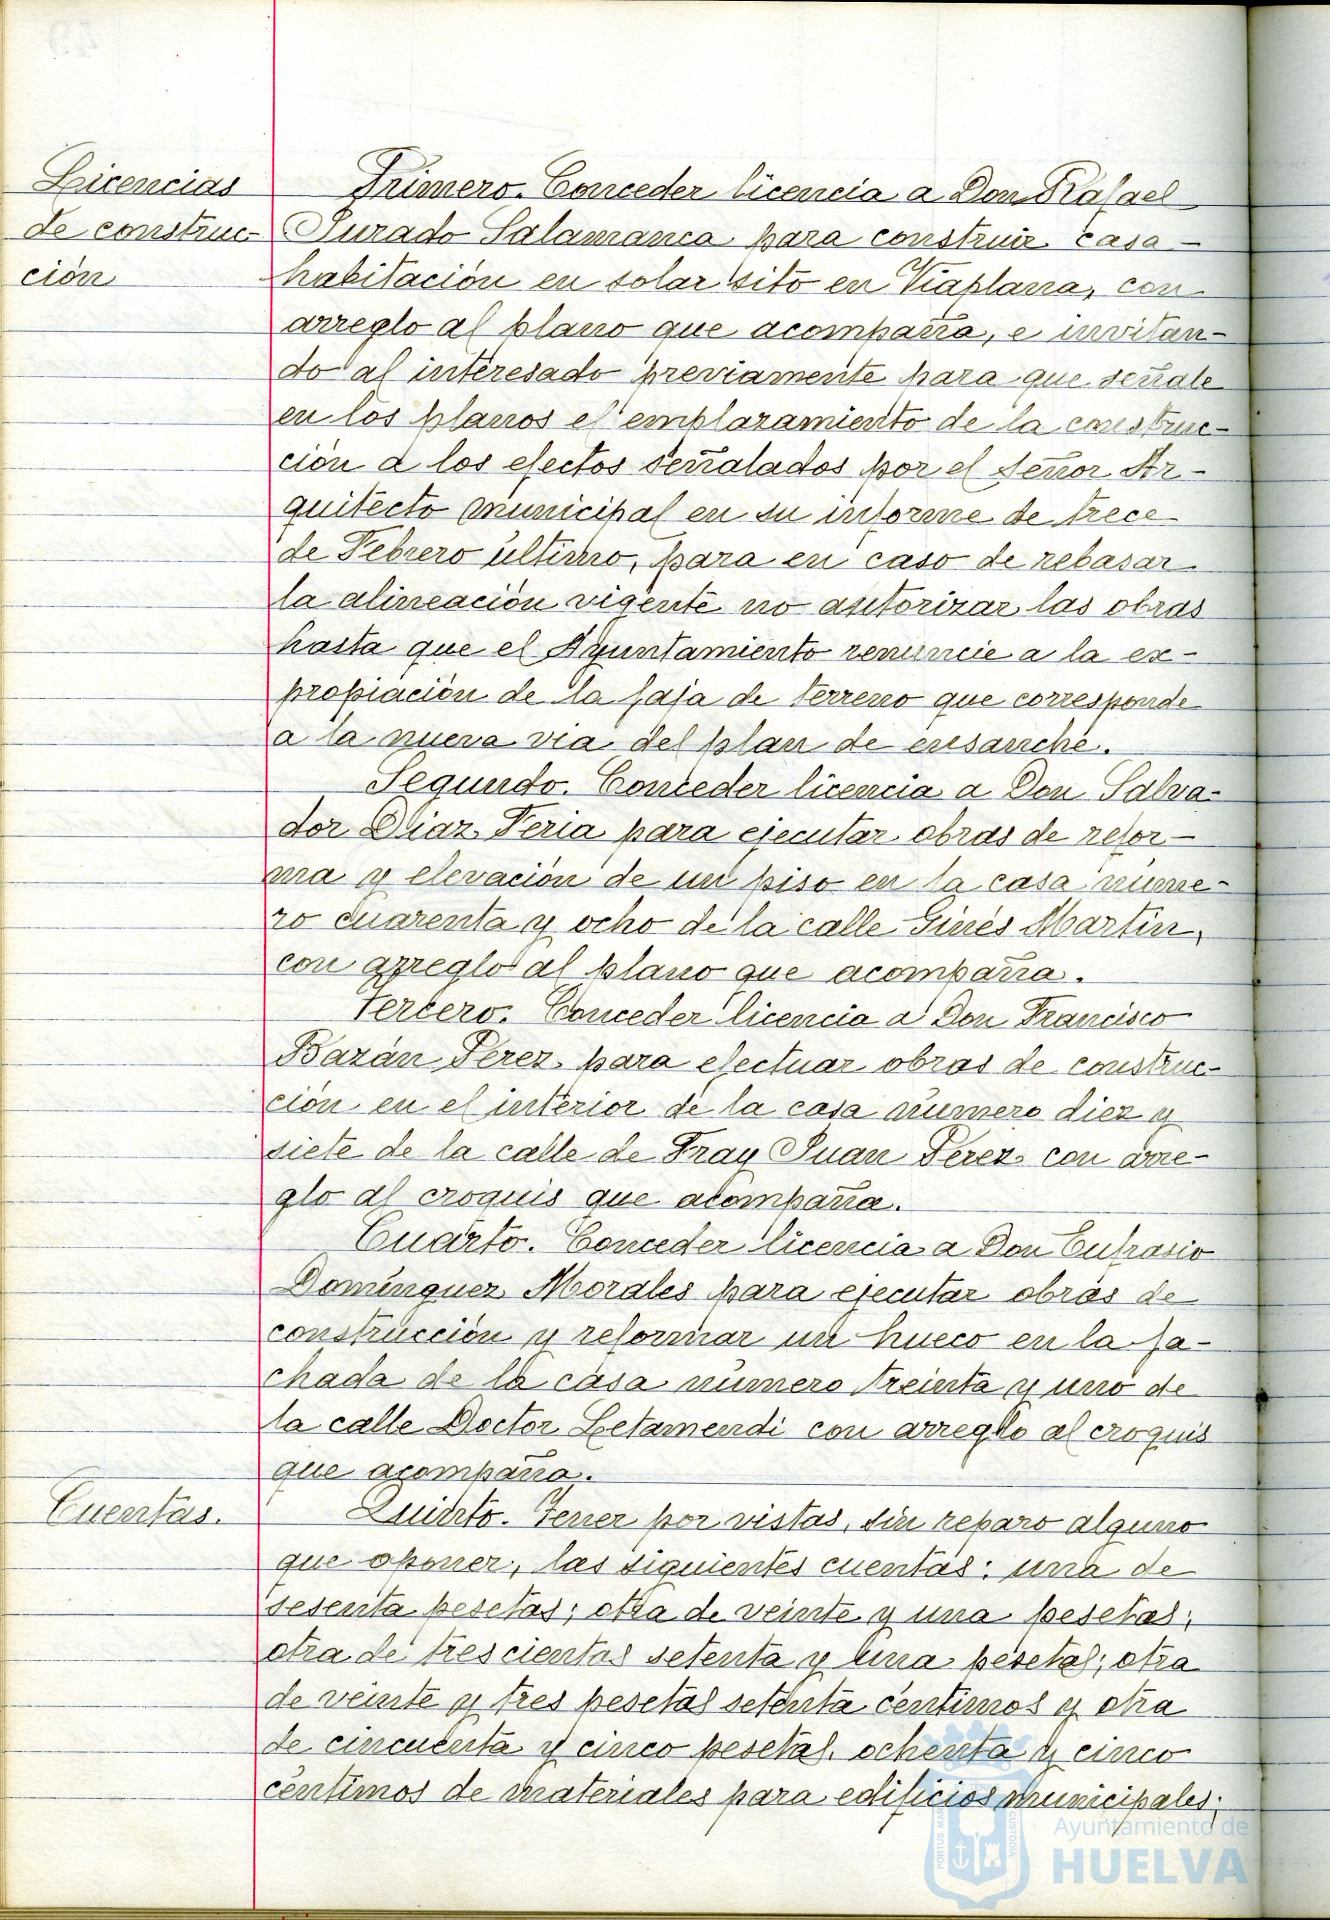 Licencias
de construc-
ción
Primero. Conceder licencia a Don Rafael
Jurado Salamanca para construir casa-
habitación en solar sito en Viaplana, con
arreglo al plano que acompaña, e invitan-
do al interesado previamente para que señale
en los planos el emplazamiento de la construc-
ción a los efectos señalados por el Señor Ar-
quitecto municipal en su informe de trece
de Febrero último, para en caso de rebasar
la alineación vigente no autorizar las obras
hasta que el Ayuntamiento renuncie a la ex-
propiación de la faja de terreno que corresponde
a la nueva via del plan de ensanche.
Segundo. Conceder licencia a Don Salva-
dor Diaz Feria para ejecutar obras de refor-
ma y elevación de un piso en la casa núme-
ro cuarenta y ocho de la calle Ginés Martín,
con arreglo al plano que acompaña.
Tercero. Conceder licencia a Don Francisco
Bazán Pérez para efectuar obras de construc-
ción en el interior de la casa número diez y
siete de la calle de Fray Juan Pérez con arre-
glo al croquis que acompaña.
Cuarto. Conceder licencia a Don Eufrasio
Domínguez Morales para ejecutar obras de
construcción y reformar un hueco en la fa-
chada de la casa número treinta y uno de
la calle Doctor Letamendi con arreglo al croquis
que acompaña.
Cuentas.
Quinto. Tener por vistas, sin reparo alguno
que oponer, las siguientes cuentas: una de
sesenta pesetas; otra de veinte y una pesetas;
otra de trescientas setenta y una pesetas; otra
de veinte y tres pesetas setenta céntimos y otra
de cincuenta y cinco pesetas, ochenta y cinco
céntimos de materiales para edificios municipales;
Ayuntamiento de
HUELVA